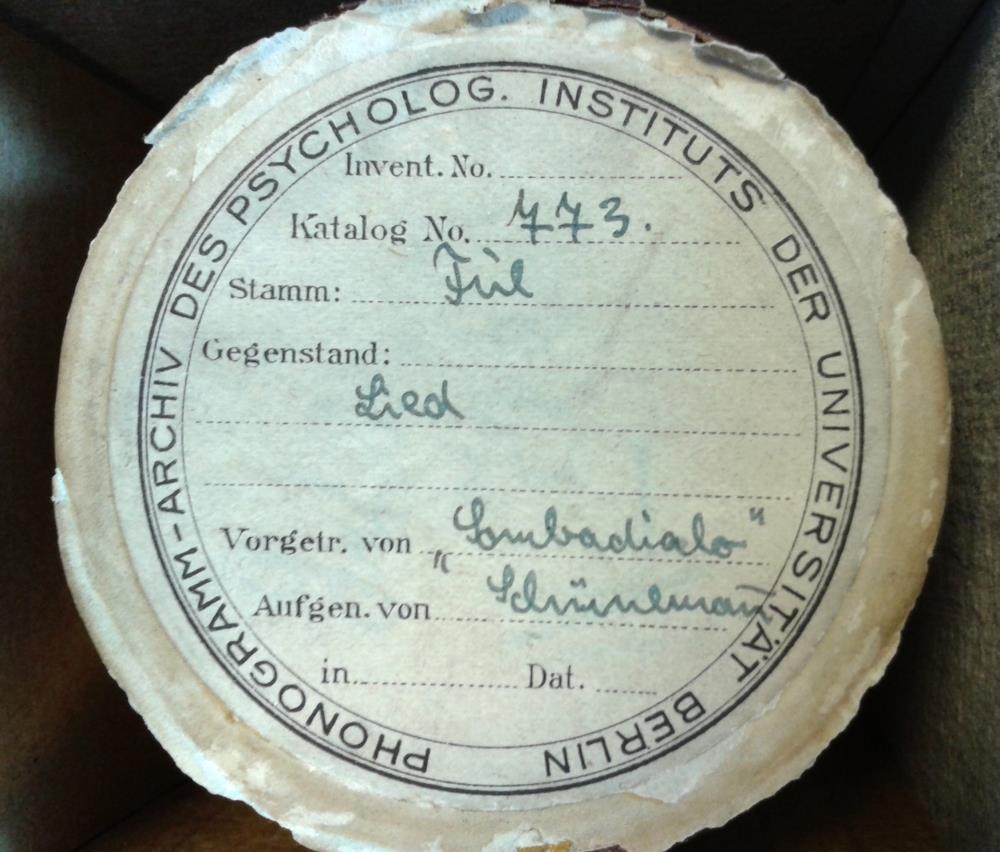 PHONOGRAMM-ARCHIV DES PSYCHOLOG. INSTITUTS DER UNIVERSITÄT BERLIN
Invent. No.
Katalog No. 773.
Stamm: Ful
Gegenstand:
Lied
Vorgetr. von „Sombadialo“
Aufgen. von Schünemann
in Dat.